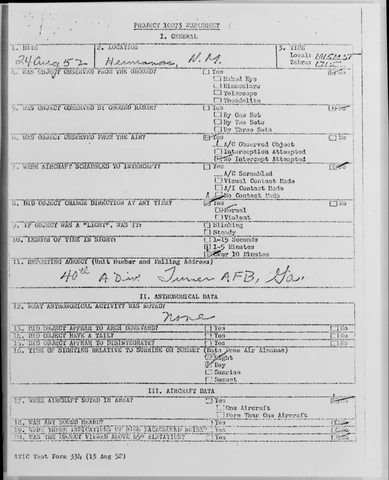 PROJECT 10073 WORKSHEET
I. GENERAL
1. DATE 2. LOCATION 3. TIME
24 Aug 52 Hermanas, N.M. Local: 1015 MST
Zebra: 1715
4. WAS OBJECT OBSERVED FROM THE GROUND? Yes No
Naked Eye
Binoculars
Telescope
Theodolite
5. WAS OBJECT OBSERVED BY GROUND RADAR? Yes No
By One Set
By Two Sets
By Three Sets
6. WAS OBJECT OBSERVED FROM THE AIR? Yes No
A/C Observed Object
Interception Attempted
No Intercept Attempted
7. WERE AIRCRAFT SCRAMBLED TO INTERCEPT? Yes No
A/C Scrambled
Visual Contact Made
A/I Contact Made
No Contact Made
8. DID OBJECT CHANGE DIRECTION AT ANY TIME? Yes No
Normal
Violent
9. IF OBJECT WAS A "LIGHT", WAS IT: Blinking
Steady
10. LENGTH OF TIME IN SIGHT: 1-15 Seconds
1-5 Minutes
Over 10 Minutes
11. REPORTING AGENCY (Unit Number and Mailing Address)
40th A Div Turner AFB, Ga.
II. ASTRONOMICAL DATA
12. WHAT ASTRONOMICAL ACTIVITY WAS NOTED?
None
13. DID OBJECT APPEAR TO ARCH DOWNWARD? Yes No
14. DID OBJECT HAVE A TAIL? Yes No
15. DID OBJECT APPEAR TO DISINTEGRATE? Yes No
16. TIME OF SIGHTING RELATIVE TO SUNRISE OR SUNSET (Data from Air Almanac)
Night
Day
Sunrise
Sunset
III. AIRCRAFT DATA
17. WERE AIRCRAFT NOTED IN AREA? Yes No
One Aircraft
More Than One Aircraft
18. WAS ANY SOUND HEARD? Yes No
19. WERE THERE INDICATIONS OF HIGH BACKGROUND NOISE? Yes No
20. WAS THE OBJECT VIEWED ABOVE ELEVATION? Yes No
ATIC Test Form 334 (13 Aug 52)